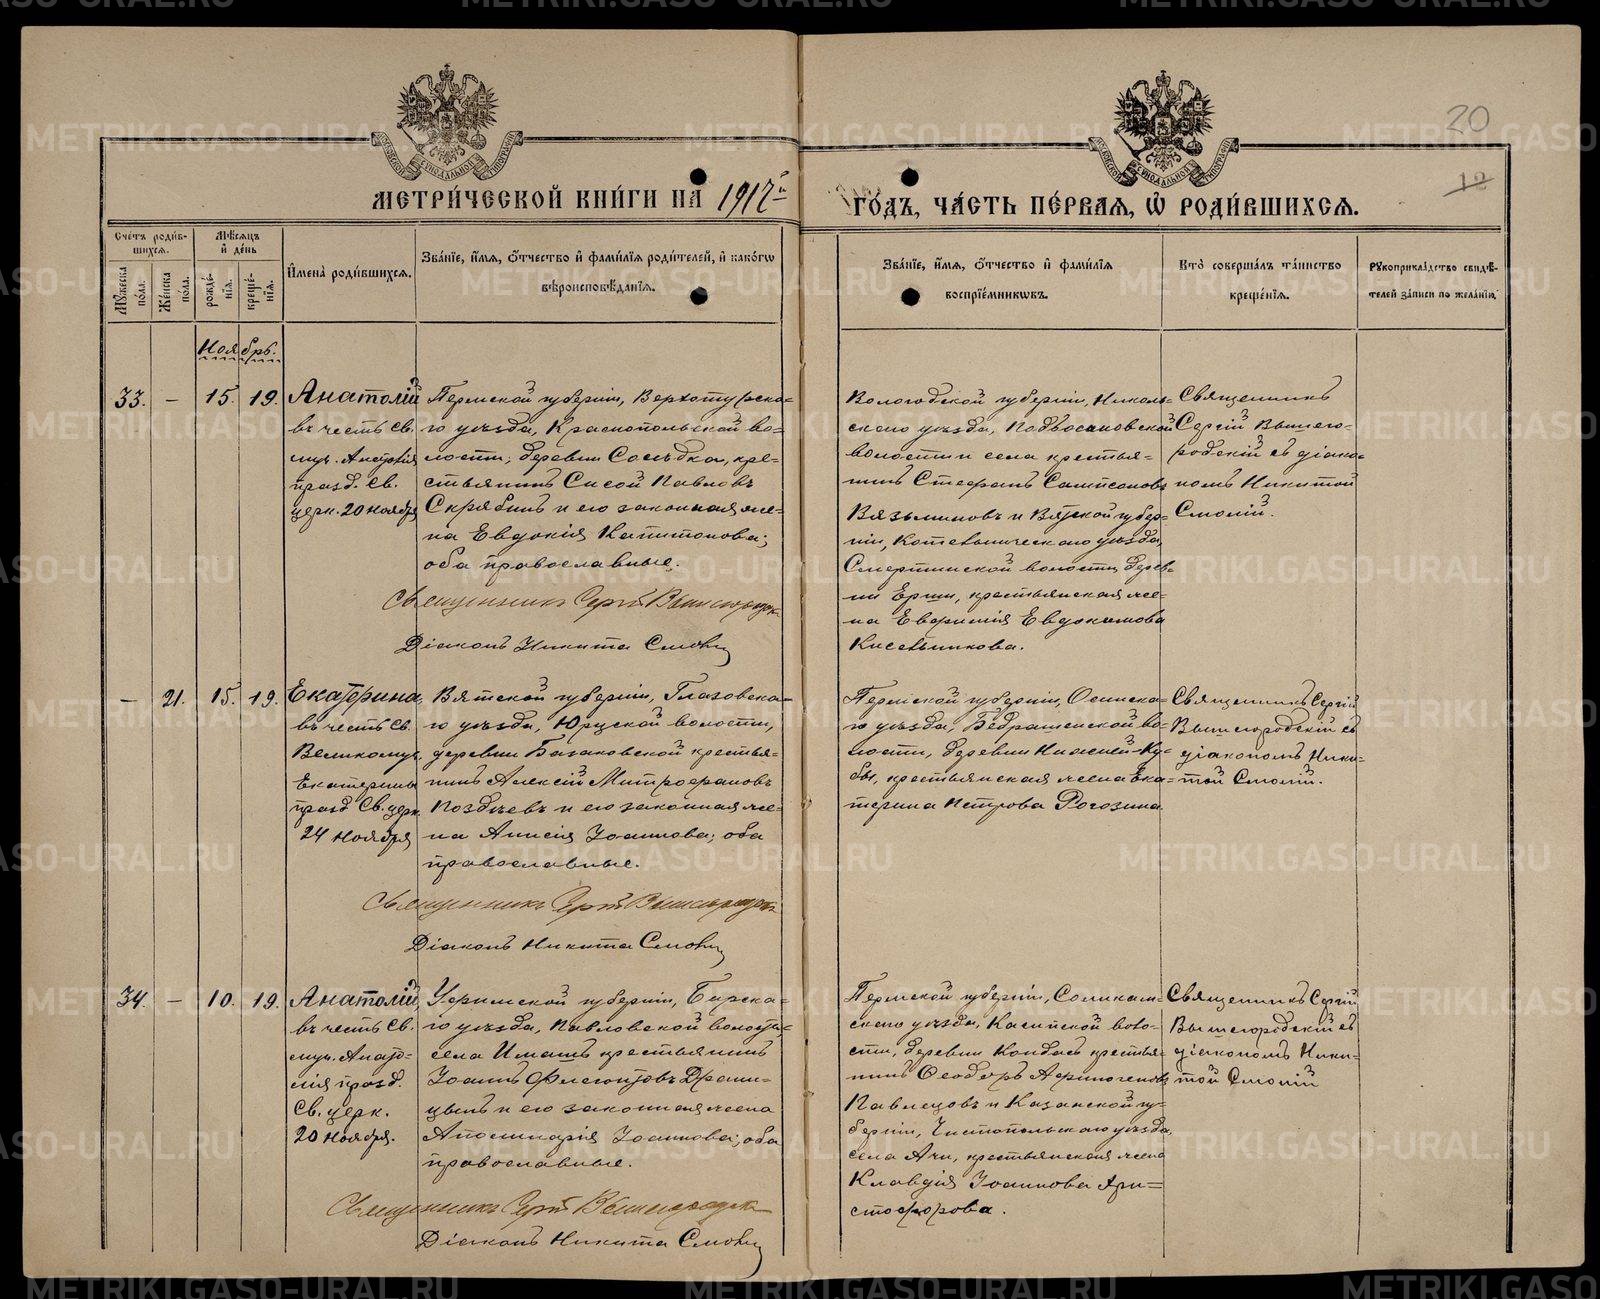 METRIKI.GASO-URAL.RU
20
12
МЕТРИ́ЧЕСКОЙ КНИ́ГИ НА 1917й
ГО́ДЪ, ЧА́СТЬ ПЕ́РВАЯ, Ѡ РОДИ́ВШИХСЯ.
Сче́тъ роди́вшихся.
Му́жеска по́ла.
Же́нска по́ла.
Мѣ́сяцъ и де́нь
рожде́нія.
креще́нія.
Имена̀ роди́вшихся.
Зва́ніе, и́мя, о́тчество и фами́лія роди́телей, и како́гѡ
вѣроисповѣ́данія.
Зва́ніе, и́мя, о́тчество и фами́лія
воспріе́мникѡвъ.
Кто̀ соверша́лъ та́инство
креще́нія.
Рукоприкла́дство свидѣ́-
телей за́писи по жела́нію.
Ноябрь.
33. – 15. 19.
Анатолій
въ честь св.
муч. Анатолія
празд. св.
церк. 20 ноября
Пермской губерніи, Верхотурска-
го уѣзда, Краснопольской во-
лости, деревни Сосѣдка, кре-
стьянинъ Сисой Павловъ
Скрябинъ и его законная же-
на Евдокія Капитонова;
оба православные.
Священникъ Сергій Вышегородскій
Діаконъ Никита Смолій
Вологодской губерніи, Николь-
скаго уѣзда, Подвосановской
волости и села крестья-
нинъ Стефанъ Сампсоновъ
Вязьминовъ и Вятской губер-
ніи, Котельническаго уѣзда,
Смертинской волости, дерев-
ни Ерши, крестьянская же-
на Евфимія Евдокимова
Кисельникова.
Священникъ
Сергій Вышего-
родскій съ діако-
номъ Никитой
Смолій.
– 21. 15. 19.
Екатерина
въ честь св.
Великомуч.
Екатерины
празд. Св. церк.
24 ноября
Вятской губерніи, Глазовска-
го уѣзда, Юрской волости,
деревни Базаковской крестья-
нинъ Алексій Митрофановъ
Поздѣевъ и его законная же-
на Анисія Іоаннова; оба
православные.
Священникъ Сергій Вышегородскій
Діаконъ Никита Смолій
Пермской губерніи, Осинска-
го уѣзда, Бедряжской во-
лости, деревни Нижней-Ку-
бы, крестьянская жена Ека-
терина Петрова Рогозина.
Священникъ Сергій
Вышегородскій съ
діакономъ Ники-
той Смолій.
34. – 10. 19.
Анатолій,
въ честь св.
муч. Анато-
лія празд.
Св. церк.
20 ноября.
Уфимской губерніи, Бирска-
го уѣзда, Павловской волости,
села Имашъ крестьянинъ
Іоаннъ Флегонтовъ Драни-
цынъ и его законная жена
Аполлинарія Іоаннова; оба
православные.
Священникъ Сергій Вышегородскій
Діаконъ Никита Смолій
Пермской губерніи, Соликам-
скаго уѣзда, Касибской воло-
сти, деревни Кондасъ крестья-
нинъ Ѳеодоръ Афиногеновъ
Павлецовъ и Казанской гу-
берніи, Чистопольскаго уѣзда,
села Ачи, крестьянская жена
Клавдія Іоаннова Хри-
стофорова.
Священникъ Сергій
Вышегородскій съ
діакономъ Ники-
той Смолій